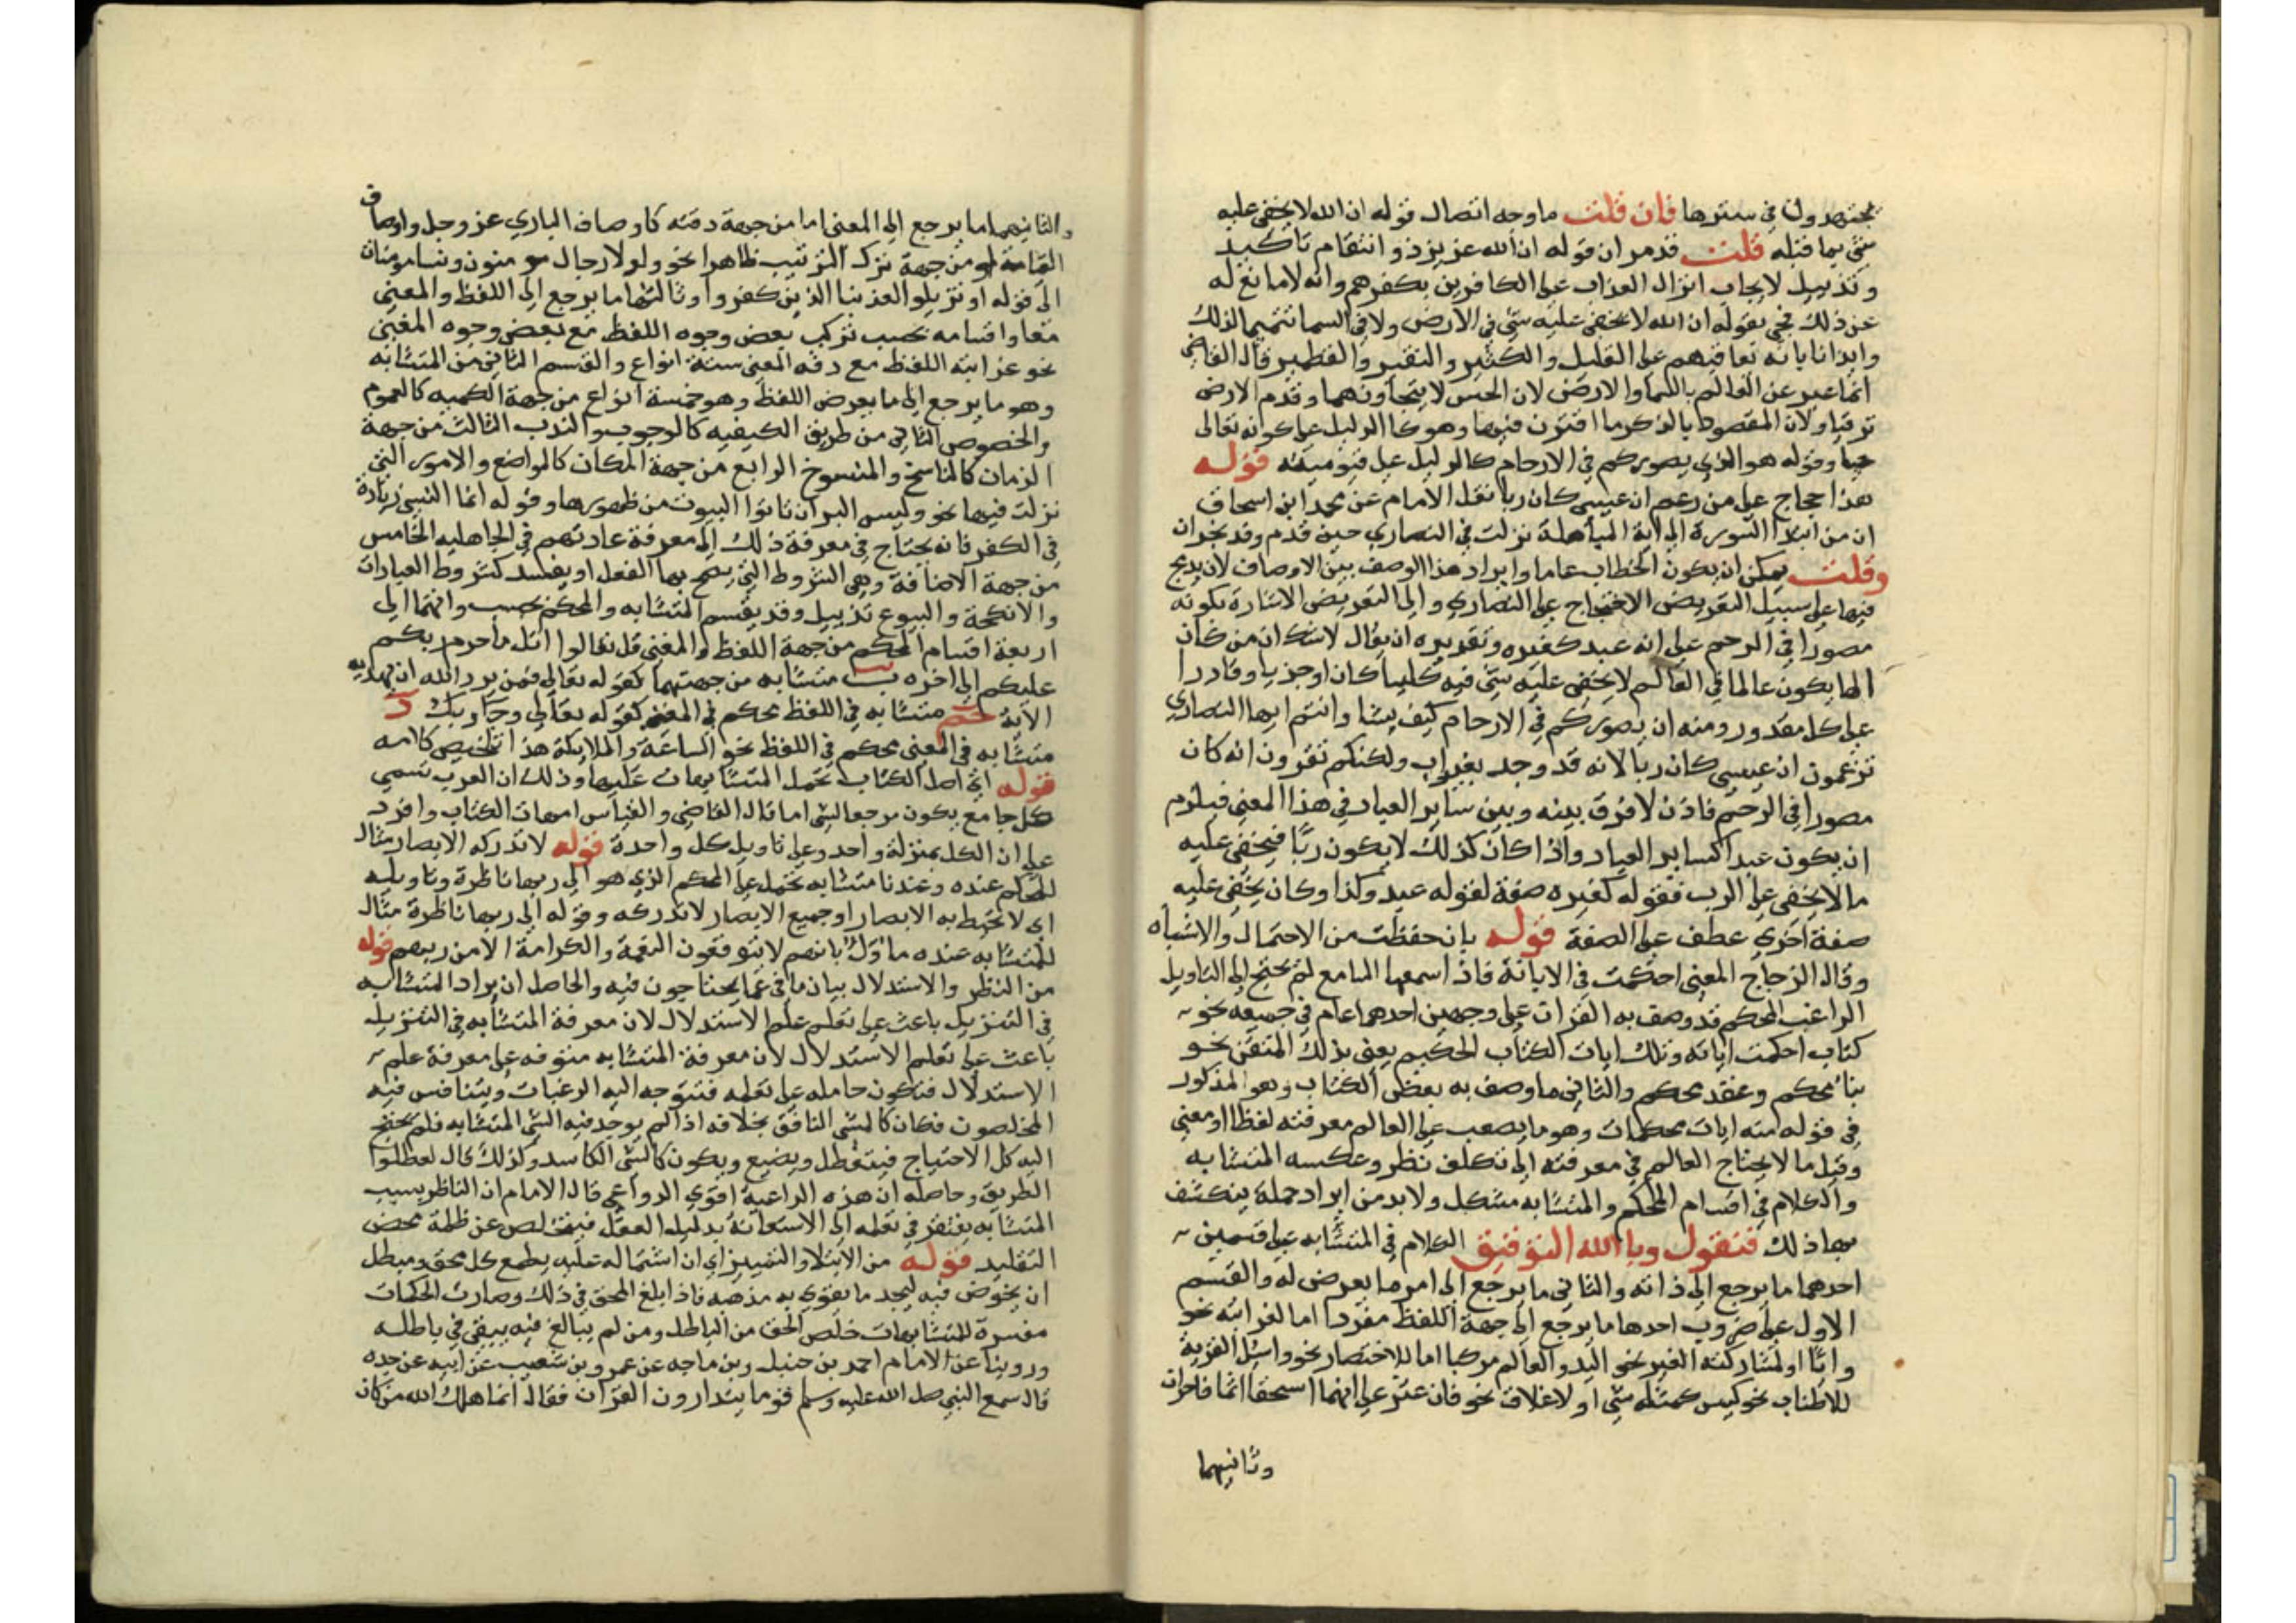 يجتهدون في سترها فان قلت ما وجه اتصال قوله ان الله لا يخفى عليه
شي بما قبله قلت قد مر ان قوله ان الله عزيز ذو انتقام تاكيد
وتذييل لايجاب انزال العذاب على الكافرين بكفرهم وانه لا مانع له
عن ذلك فجي بقوله ان الله لا يخفى عليه شي في الارض ولا في السما تتميما لذلك
وايذانا بانه تعاقبهم على القليل والكثير والنقير والقطمير قال القاضي
انما عبر عن العالم بالسما والارض لان الحس لا يتجاوزهما وقدم الارض
ترقيا ولان المقصود بالذكر ما اقترن فيها وهو كالدليل على كونه تعالى
حيا وقوله هو الذي يصوركم في الارحام كالدليل على قيوميته قوله
هذا حجاج على من زعم ان عيسى كان ربا نقل الامام عن محمد ابن اسحاق
ان من ابتدا السورة الى اية المباهلة نزلت في النصاري حين قدم وفد نجران
وقلت يمكن ان يكون الخطاب عاما وايراد هذا الوصف بين الاوصاف لان يدمج
فيها على سبيل التعريض الاحتجاج على النصاري والى التعريض الاشارة بكونه
مصورا في الرحم على انه عبد كغيره وتقديره ان يقال لا شك ان من كان
الها يكون عالما في العالم لا يخفى عليه شي فيه كليا كان او جزيا وقادرا
على كل مقدور ومنه ان يصوركم في الارحام كيف يشا وانتم ايها النصاري
تزعمون ان عيسى كان ربا لانه قد وجد بغير اب ولكنكم تقرون انه كان
مصورا في الرحم فاذن لا فرق بينه وبين ساير العباد في هذا المعنى فيلزم
ان يكون عبدا كساير العباد واذا كان كذلك لا يكون ربا فيخفى عليه
ما لا يخفى على الرب فقوله كغيره صفة لقوله عبد وكذا وكان يخفى عليه
صفة اخري عطف على الصفة قوله بان حفظت من الاحتمال والاشتباه
وقال الزجاج المعنى احكمت في الابانة فاذا سمعها السامع لم يحتج الى التاويل
الراغب المحكم قد وصف به القران على وجهين احدهما عام في جميعه نحو
كتاب احكمت اياته وتلك ايات الكتاب الحكيم يعني بذلك المتقن نحو
بنا محكم وعقد محكم والثاني ما وصف به بعض الكتاب وهو المذكور
في قوله منه ايات محكمات وهو ما يصعب على العالم معرفته لفظا او معنى
وقيل ما لا يحتاج العالم في معرفته الى تكلف نظر وعكسه المتشابه
والكلام في اقسام المحكم والمتشابه مشكل ولا بد من ايراد جملة ينكشف
بها ذلك فنقول وبالله التوفيق الكلام في المتشابه على قسمين
احدهما ما يرجع الى ذاته والثاني ما يرجع الى امر ما يعرض له والقسم
الاول على ضروب احدها ما يرجع الى جهة اللفظ مفردا اما لغرابته نحو
وابا او لمشاركته الغير نحو اليد والعالم مركبا اما للاختصار نحو واسئل القرية
للاطناب نحو ليس كمثله شي او لاغلاق نحو فان عثر على انهما استحقا اثما فاخران
وثانيهما
والثانيهما ما يرجع الى المعنى اما من جهة دقته كاوصاف الباري عز وجل واوصاف
القيامة او من جهة ترك الترتيب ظاهرا نحو ولولا رجال مومنون ونسا مومنات
الى قوله او تزيلوا لعذبنا الذين كفروا وثالثها ما يرجع الى اللفظ والمعنى
معا واقسامه بحسب تركب بعض وجوه اللفظ مع بعض وجوه المعنى
نحو غرابته اللفظ مع دقه المعنى ستة انواع والقسم الثاني من المتشابه
وهو ما يرجع الى ما يعرض اللفظ وهو خمسة انواع من جهة الكميه كالعموم
والخصوص الثاني من طريق الكيفيه كالوجوب والندب الثالث من جهة
الزمان كالناسخ والمنسوخ الرابع من جهة المكان كالمواضع والامور التي
نزلت فيها نحو وليس البر ان تاتوا البيوت من ظهورها وقوله انما النسي زيادة
في الكفر فانه يحتاج في معرفة ذلك الى معرفة عادتهم في الجاهليه الخامس
من جهة الاضافة وهي الشروط التي يصح بها الفعل او يفسد كشروط العبادات
والانكحة والبيوع تذييل وقد يقسم المتشابه والمحكم بحسب وانهما الى
اربعة اقسام المحكم من جهة اللفظ والمعنى قل تعالوا اتل ما حرم ربكم
عليكم الى اخره ب متشابه من جهتهما كقوله تعالى فمن يرد الله ان يهديه
الآية متشابه في اللفظ محكم في المعنى كقوله تعالى وجا ربك د
متشابه في المعنى محكم في اللفظ نحو الساعة والملايكة هذا تلخيص كلامه
قوله اي اصل الكتاب تحمل المتشابهات عليها وذلك ان العرب تسمي
كل جامع يكون مرجعا لشي اما قال القاضي والقياس امهات الكتاب وافرد
على ان الكل بمنزلة واحد وعلى تاويل كل واحدة قوله لا تدركه الابصار مثال
للمحكم عنده وعندنا متشابه تحمل على المحكم الذي هو الى ربها ناظرة وتاويله
اي لا تحيط به الابصار او جميع الابصار لا تدركه وقوله الى ربها ناظرة مثال
للمتشابه عنده ماول بانهم لا يتوقعون النعمة والكرامة الا من ربهم قوله
من النظر والاستدلال بيان ما في عما يحتاجون فيه والحاصل ان يراد المتشابه
في التنزيل باعث على تعلم علم الاستدلال لان معرفة المتشابه في التنزيل
باعث على تعلم الاستدلال لان معرفة المتشابه متوقفه على معرفة علم
الاستدلال فتكون حامله على تعلمه فتتوجه اليه الرغبات ويتنافس فيه
المخلصون فكان كالشي النافق بخلافه اذا لم يوجد فيه الشي المتشابه فلم يحتج
اليه كل الاحتياج فيتعطل ويضيع ويكون كالشي الكاسد وكذلك قال لعطلوا
الطريق وحاصله ان هذه الداعية اقوي الدواعي قال الامام ان الناظر بسبب
المتشابه يفتقر في تعلمه الى الاستعانة بدليل العقل فيتخلص عن ظلمة محض
التقليد قوله من الابتلا والتمييز اي ان اشتماله عليه يطمع كل محق ومبطل
ان يخوض فيه ليجد ما يقوي به مذهبه فاذا بلغ المحق في ذلك وصارت المحكمات
مفسرة للمتشابهات خلص الحق من الباطل ومن لم يبالغ فيه يبقى في باطله
وروينا عن الامام احمد بن حنبل وبن ماجه عن عمرو بن شعيب عن ابيه عن جده
قال سمع النبي صلى الله عليه وسلم قوما يتدارون القران فقال انما هلك الله من كان